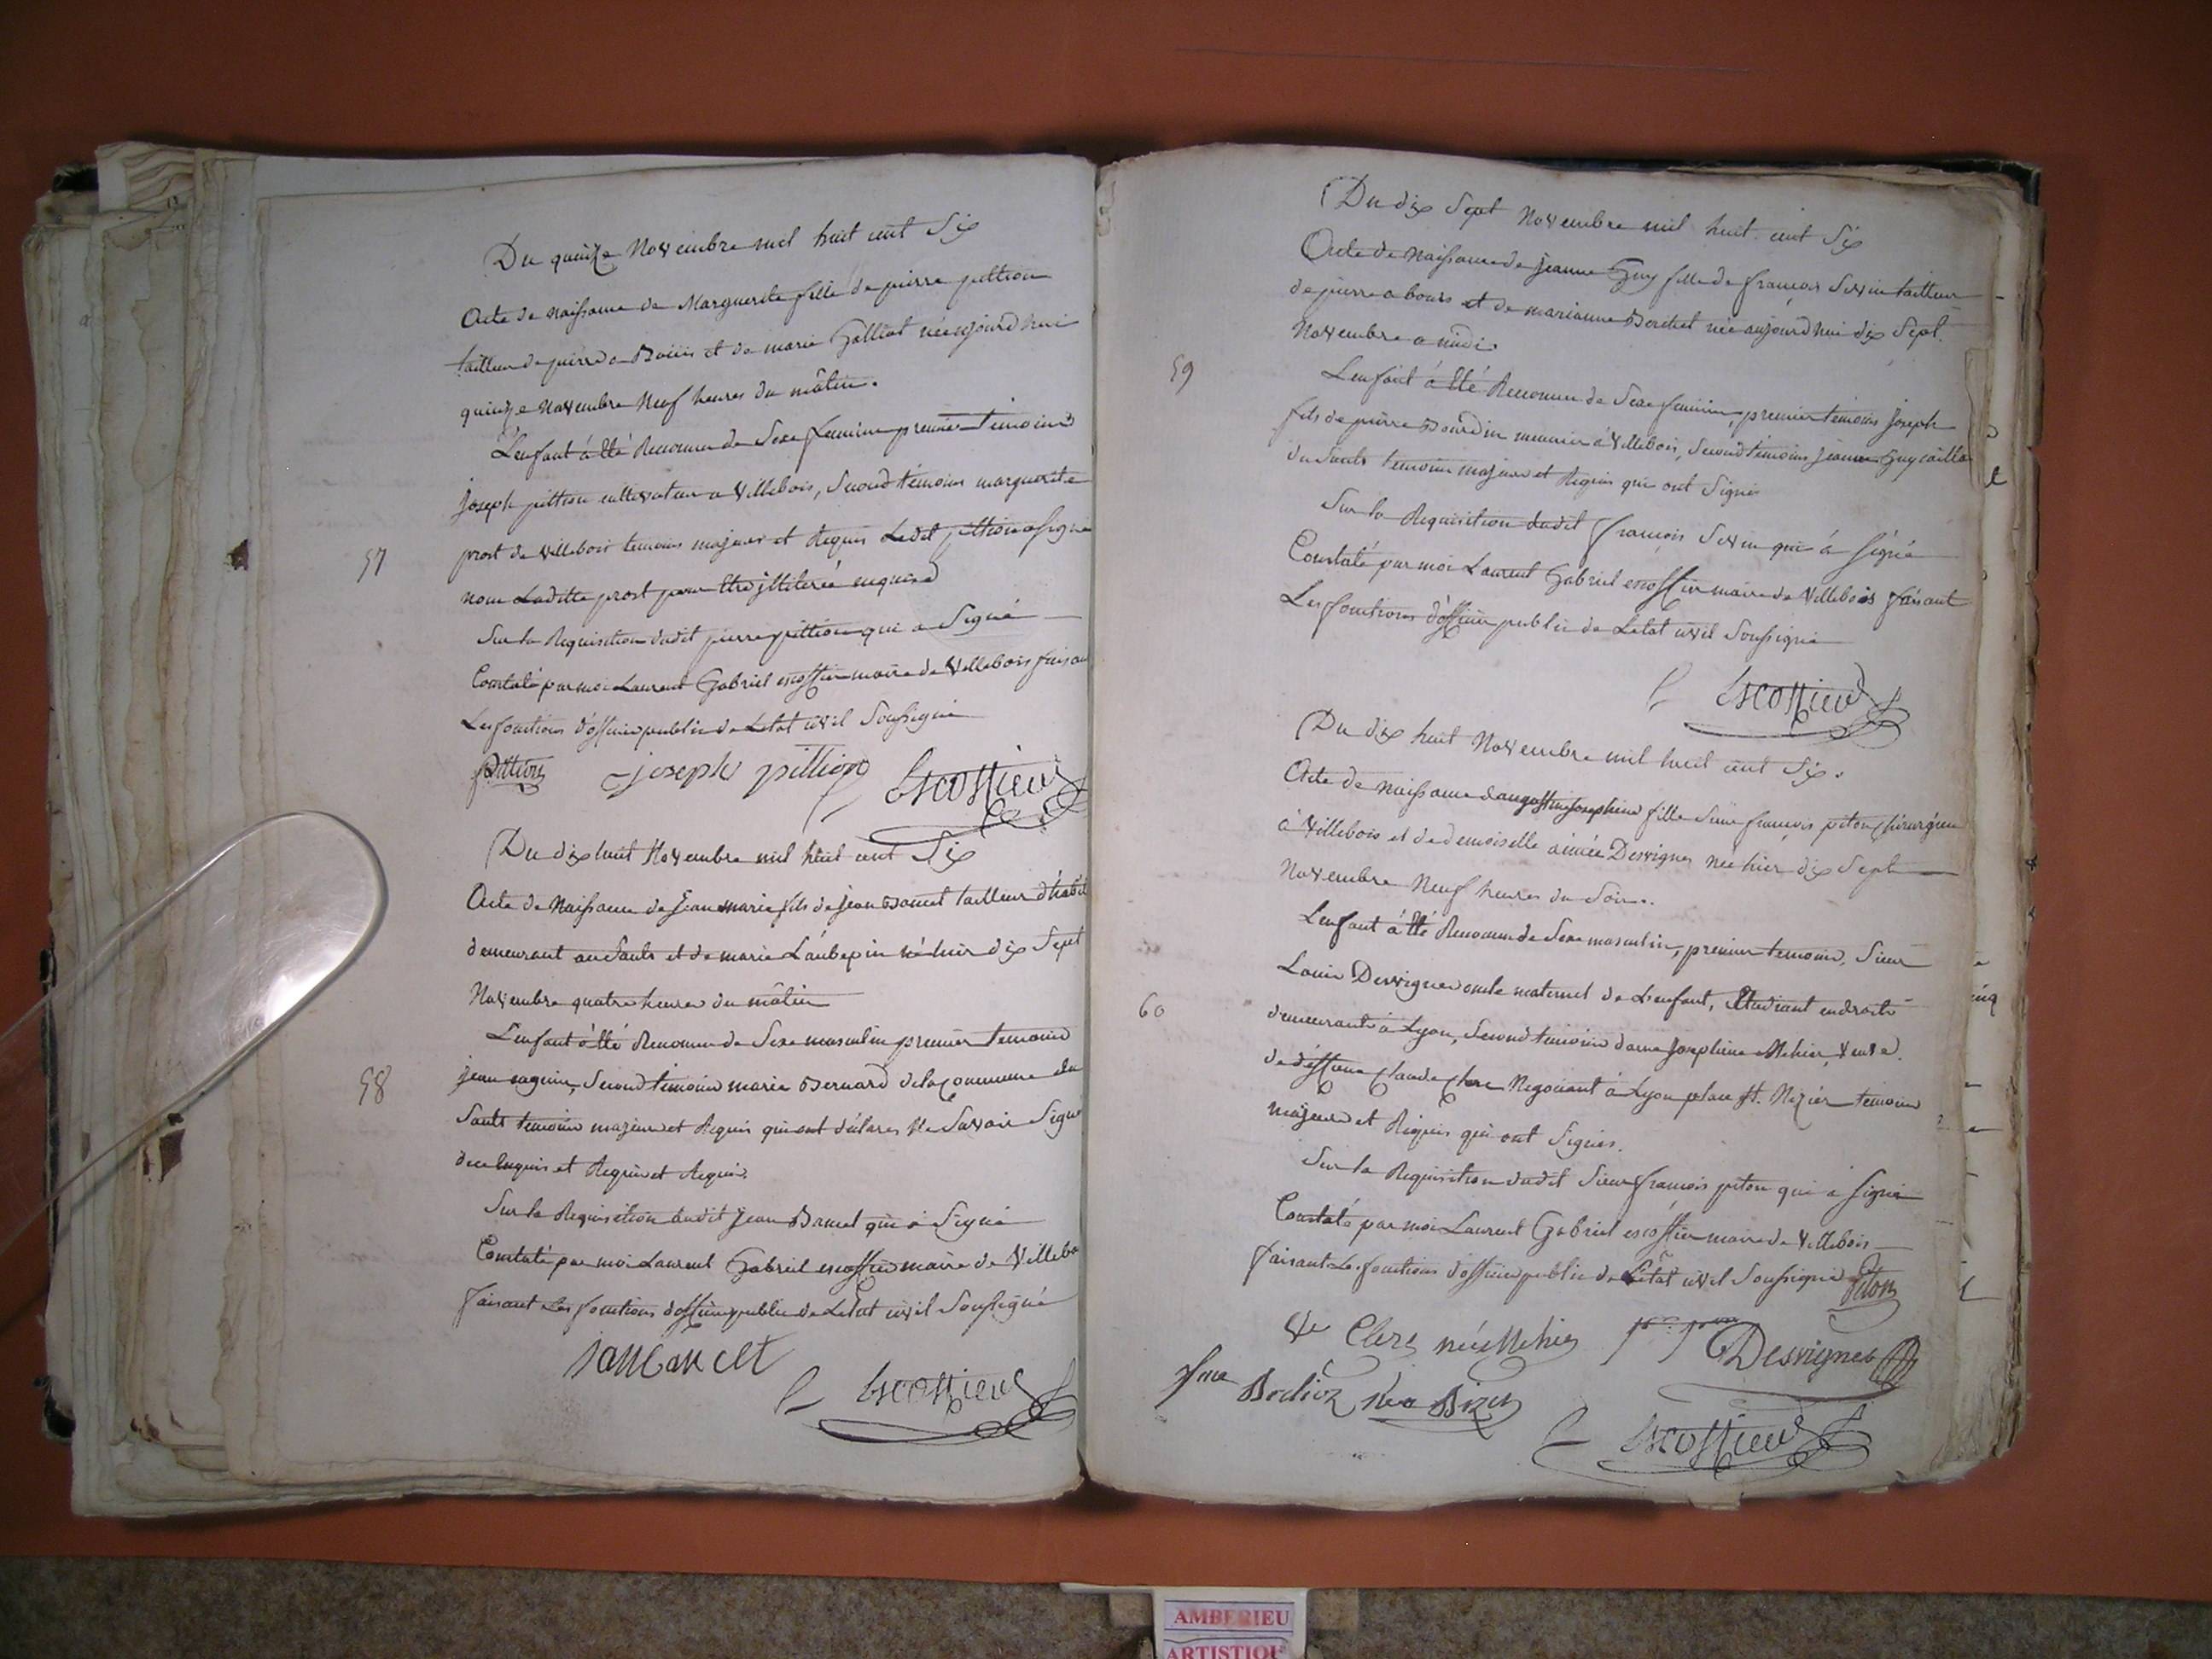 Du quinze Novembre mil huit cent Six
Acte de naissance de Marguerite fille de pierre pittion
tailleur de pierre a Bouis et de marie Galliat née aujourd'hui
quinze Novembre Neuf heures du mâtin.
L'enfant à été Reconnu de Sexe feminin premier temoins
joseph pittion cultivateur a Villebois, Second témoins marguerite
57
prost de Villebois temoins majeurs et Requis Ledit pittion a signé
non Laditte prost pour être illiterée enquise
Sur la Requisition dudit pierre pittion qui a Signé
Constaté par moi Laurent Gabriel escoffier maire de Villebois faisant
Les fonctions d'officier public de Letat civil Soussigné
pittion joseph pittion Escoffier
Du dix huit Novembre mil huit cent Six
Acte de Naissance de Jean marie fils de jean Bancet tailleur d'habit
demeurant au Sault et de marie Laubepin né hier dix Sept
Novembre quatre heures du mâtin
L'enfant à été Reconnu de Sexe masculin premier temoins
58
jean, Second témoins marie Bernard de la Commune du
Sault temoins majeurs et Requis qui ont déclarés Ne Savoir Signer
de ce Enquis et Requis et Requis.
Sur la Requisition dudit jean Bancet qui a Signé
Constaté par moi Laurent Gabriel escoffier maire de Villebo
faisant Les fonctions d'officier public de Letat civil Soussigné
janbancet
Escoffier
Du dix Sept Novembre mil huit cent Six
Acte de Naissance de jeanne Guy fille de françois Servin tailleur
de pierre a bouis et de marianne née aujourd'hui dix Sept
Novembre a midi.
59
L'enfant à été Reconnu de Sexe feminin, premier témoins joseph
fils de pierre Bourdin meunier à Villebois, Second témoins jeanne Guy
du Sault temoins majeurs et Requis qui ont Signés
Sur la Requisition dudit françois Servin qui a signé
Constaté par moi Laurent Gabriel escoffier maire de Villebois faisant
Les fonctions d'officier public de Letat civil Soussigné
Escoffier
Du dix huit Novembre mil huit cent Six.
Acte de naissance d'augustine josephine fille Sieur françois piton Chirurgien
à Villebois et de demoiselle aimée Desvignes née hier dix Sept
Novembre Neuf heures du Soir.
L'enfant à été Reconnu de Sexe masculin, premier temoins, Sieur
Louis Desvignes oncle maternel de L'enfant, Etudiant en droit
60
demeurant à Lyon, Second temoins dame josephine Mehier, Veuve
de deffunt Claude Clerc Negociant à Lyon place St. Nizier temoins
majeurs et Requis qui ont Signés.
Sur la Requisition dudit Sieur françois piton qui a signé
Constaté par moi Laurent Gabriel escoffier maire de Villebois
faisant Les fonctions d'officier public de L'état civil Soussigné piton
Ve Clerc née Mehier Desvignes
Escoffier
AMBERIEU
ARTISTIQU